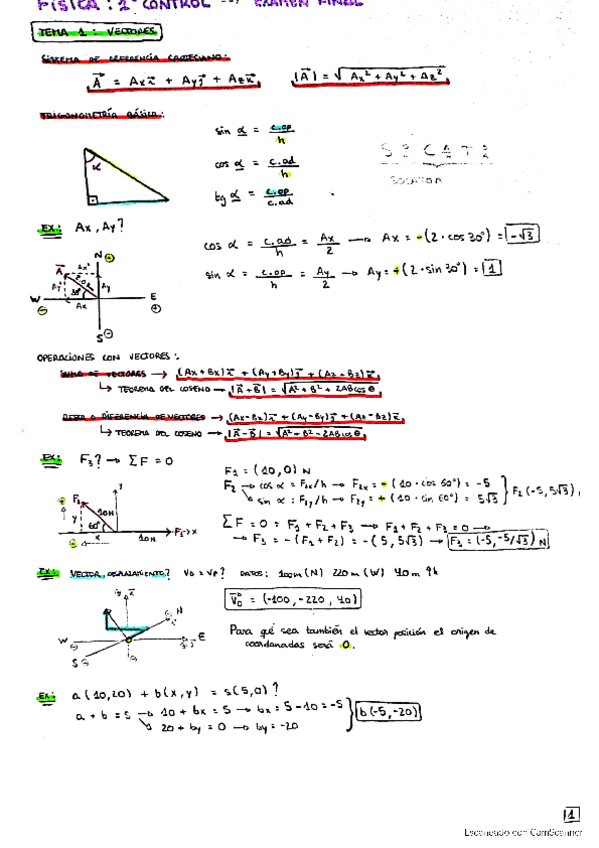 FÍSICA: 1º CONTROL → EXAMEN FINAL
TEMA 1: VECTORES
SISTEMA DE REFERENCIA CARTESIANO:
A = Ax i + Ay j + Az k   |A| = √Ax² + Ay² + Az²
TRIGONOMETRÍA BÁSICA:
sin α = c.op / h
cos α = c.ad / h
tg α = c.op / c.ad
α
EX: Ax, Ay?
cos α = c.ad / h = Ax / 2 → Ax = -(2·cos 30°) = -√3
sin α = c.op / h = Ay / 2 → Ay = +(2·sin 30°) = 1
N
A
Ay
W
E
Ax
S
OPERACIONES CON VECTORES:
SUMA DE VECTORES → (Ax+Bx)i + (Ay+By)j + (Az+Bz)k
↳ TEOREMA DEL COSENO → |A+B| = √A² + B² + 2ABcosθ
RESTA O DIFERENCIA DE VECTORES → (Ax-Bx)i + (Ay-By)j + (Az-Bz)k
↳ TEOREMA DEL COSENO → |A-B| = √A² + B² - 2ABcosθ
EX: F3? → ΣF = 0
F1 = (10,0) N
F2 → cos α = F2x/h → F2x = -(10·cos 60°) = -5
sin α: F2y/h → F2y = +(10·sin 60°) = 5√3 } F2(-5, 5√3)
ΣF = 0 = F1 + F2 + F3 → F1 + F2 + F3 = 0 →
→ F3 = -(F1+F2) = -(5, 5√3) → F3 = (-5, -5√3) N
F2
10N
y
60°
x
10N
EX: VECTOR DESPLAZAMIENTO? VD = VP? DATOS: 100m (N) 220m (W) 40m ↑h
VD = (-100, -220, 40)
Para que sea también el vector posición el origen de
coordenadas será 0.
N
W
E
S
EX: a(10,20) + b(x,y) = s(5,0)?
a + b = s → 10 + bx = 5 → bx = 5-10 = -5
20 + by = 0 → by = -20 } b(-5,-20)
1
Escaneado con CamScanner